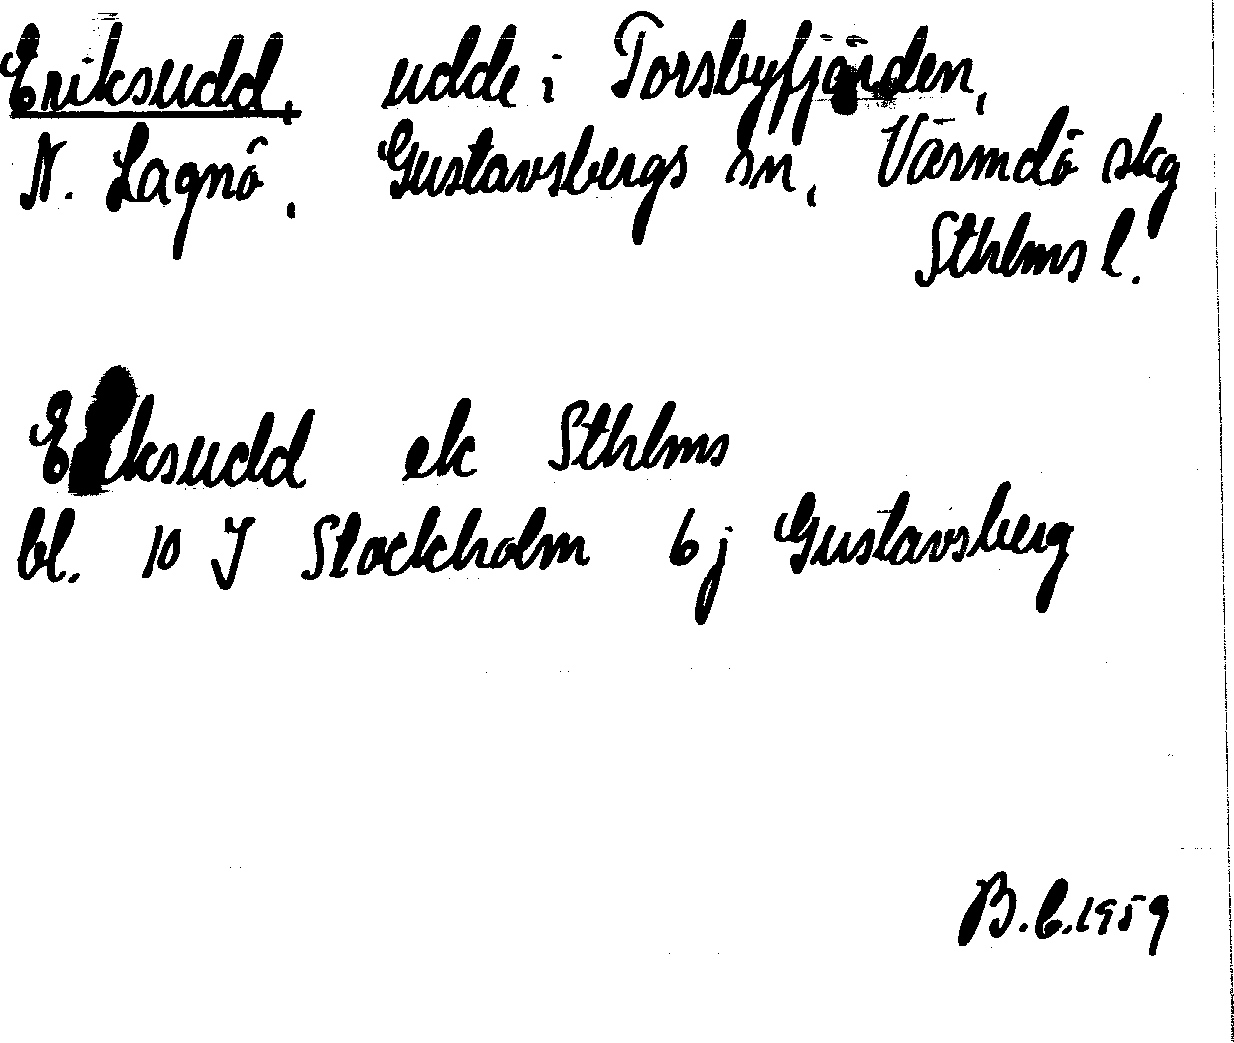 Eriksudd, udde i Torsbyfjärden,
N. Lagnö, Gustavsbergs sn, Värmdö skg
Sthlms l.
Eriksudd ek Sthlms
bl. 10 J Stockholm 6j Gustavsberg
B.C.1959